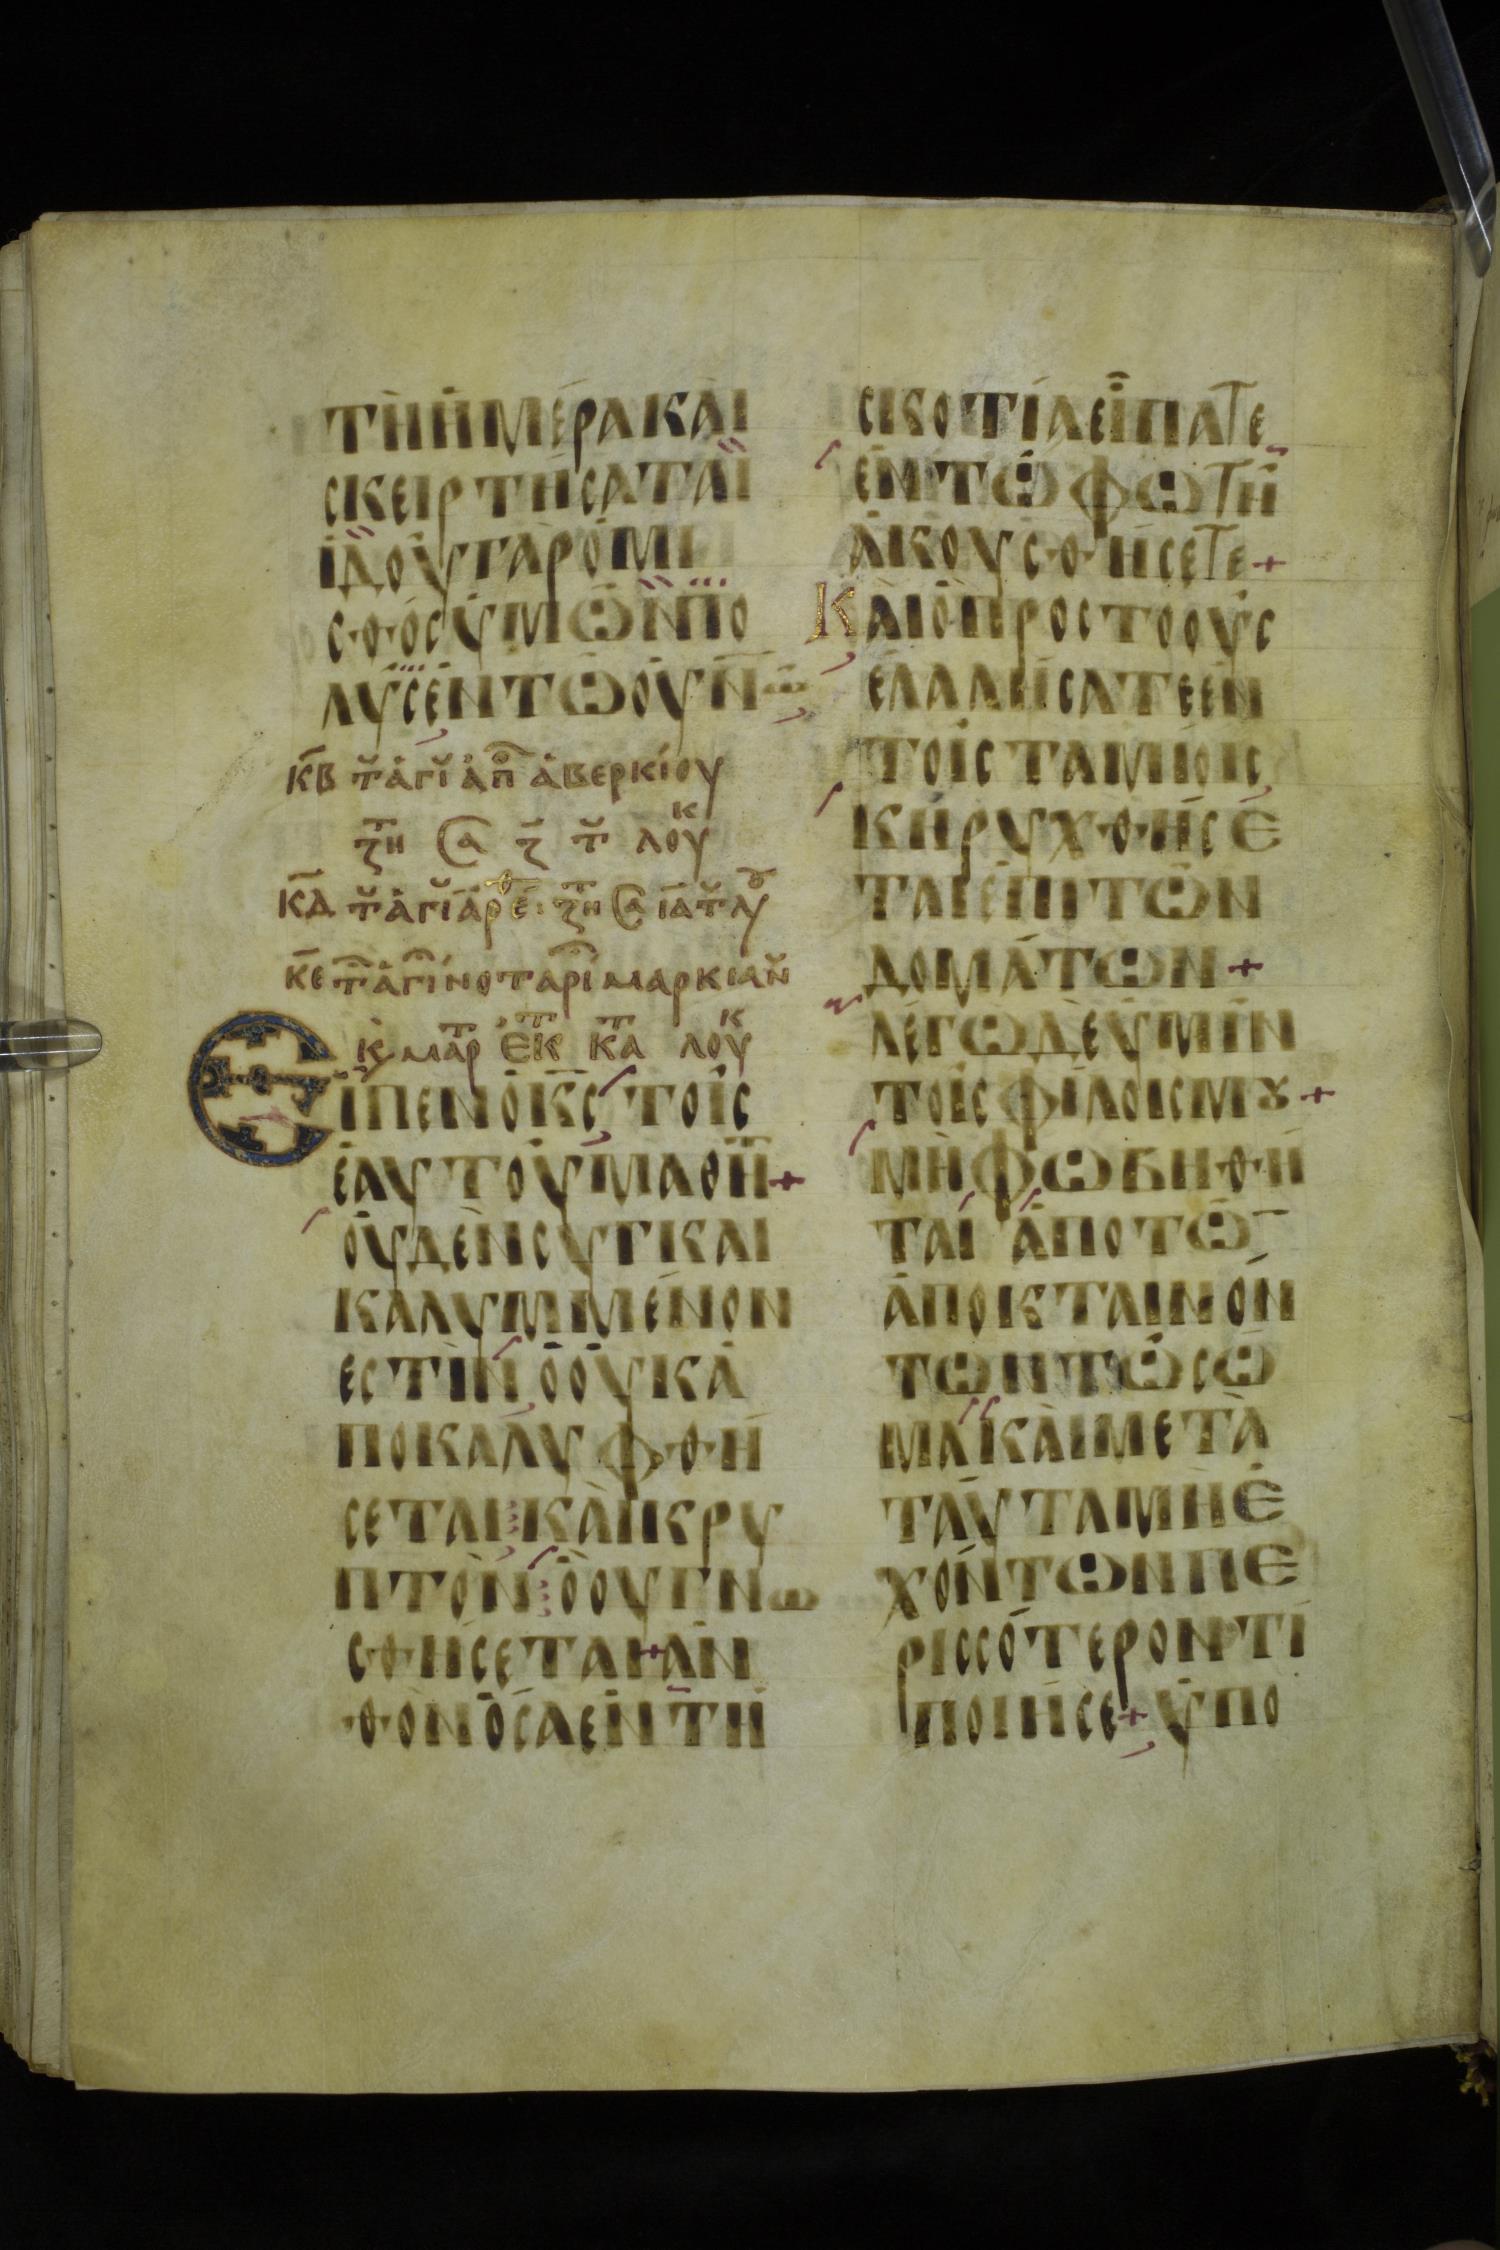 ΤῊ ἩΜΈΡΑ ΚΑῚ
ΣΚΕΙΡΤΉΣΑΤΑΙ
ἸΔΟῪ ΓᾺΡ Ὁ ΜΙ
ΣΘῸΣ ΥΜΩΝ ΠΟ
ΛῪΣ ἘΝ ΤΩ ΟΥΝΩ
ΚΒ Τ ἉΓΙ ἈΠ ἈΒΕΡΚΊΟΥ
ΖΗ Α Ζ Τ ΛΟΥΚ
ΚΔ Τ ἉΓΙ ἈΡΕΘ ΖΗ Α ΙΑ Τ ΛΥ
ΚΕ Τ ἉΓΙ ΝΟΤΑΡΙ ΜΑΡΚΙΑΝ
Κ ΜΑΡ ἘΚ ΚΑ ΛΟΥΚ
ΕΙΠΕΝ Ὁ ΚΣ ΤΟΙΣ
ἙΑΥΤΟΥ ΜΑΘΗΤ+
ΟΥΔΕῚΝ ΣΥΓΚΑΙ
ΚΑΛΥΜΜΈΝΟΝ
ΕΣΤῚΝ Ὃ ΟΥΚ Ἀ
ΠΟΚΑΛΥΦΘΉ
ΣΕΤΑΙ ΚΑῚ ΚΡΥ
ΠΤῸΝ Ὃ ΟΥ ΓΝΩ
ΣΘΉΣΕΤΑΙ+ ἈΝ
ΘΟΝ ὍΣΑ ἘΝ ΤΗ
ΣΚΟΤΊΑ ΕΙΠΑΤΕ
ἘΝ ΤΩ ΦΩΤΗ
ἈΚΟΥΣΘΉΣΕΤΕ+
ΚΑῚ Ὃ ΠΡΟΣ ΤΟ ΟΥΣ
ἘΛΑΛΉΣΑΤΕ ἘΝ
ΤΟΙΣ ΤΑΜΊΟΙΣ
ΚΗΡΥΧΘΉΣΕ
ΤΑΙ ἘΠΙ ΤΩΝ
ΔΟΜΆΤΩΝ+
ΛΈΓΩ ΔΕ ΥΜΙΝ
ΤΟΙΣ ΦΊΛΟΙΣ ΜȢ+
ΜῊ ΦΩΒΗΘΗ
ΤΑΙ ἈΠΟ ΤΩ̅
ἈΠΟΚΤΑΙΝΌΝ
ΤΩΝ ΤΩ ΣΩ
ΜΑ ΚΑῚ ΜΕΤᾺ
ΤΑΥΤΑ ΜῊ Ἐ
ΧΌΝΤΩΝ ΠΕ
ΡΙΣΣΌΤΕΡΟΝ ΤΙ
ΠΟΙΗΣΕ+ ὙΠΟ